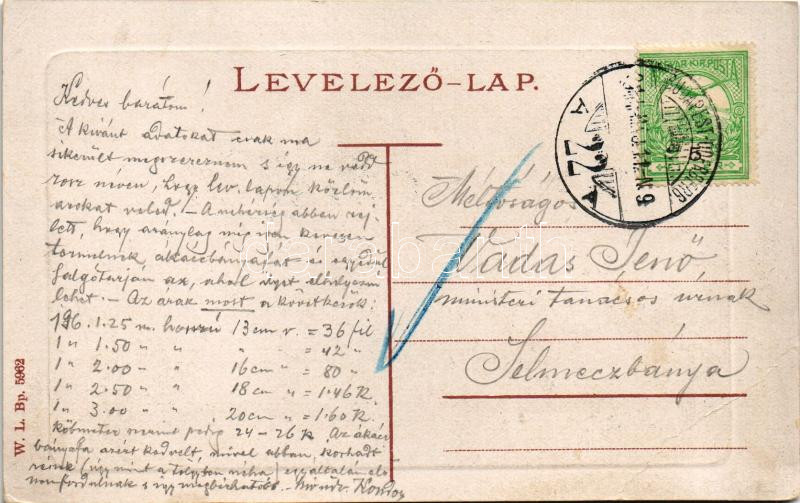 LEVELEZŐ-LAP.
Kedves barátom!
A kivánt adatokat csak ma
sikerült megszereznem s így ne vedd
rosz néven, hogy lev. lapon közlöm
azokat veled. - A nehézség abban rej-
lett, hogy aránylag még igen kevesen
termelnek ákáczbányafát és egyedül
Salgótarján az, ahol ilyet
lehet. - Az árak most a következők:
1 1.25 m. hosszú 13 cm v. = 36 fil
1 " 1.50 " " " " = 42 "
1 " 2.00 " " 16 cm " = 80 "
1 " 2.50 " " 18 cm " = 1.46 K.
1 " 3.00 " " 20 cm " = 1.60 K.
köbméter szerint pedig 24-26 K. Az ákácz
bányafa azért kedvelt, mivel abban, korhadt
részek (úgy mint a tölgyben néha) egyáltalán elő
nem fordulnak s így megbízhatóbb. -
Méltóságos
Vadas Jenő
ministeri tanácsos úrnak
Selmeczbánya
W. L. Bp. 5962
MAGYAR KIR. POSTA
BUDAPEST
A 77
A